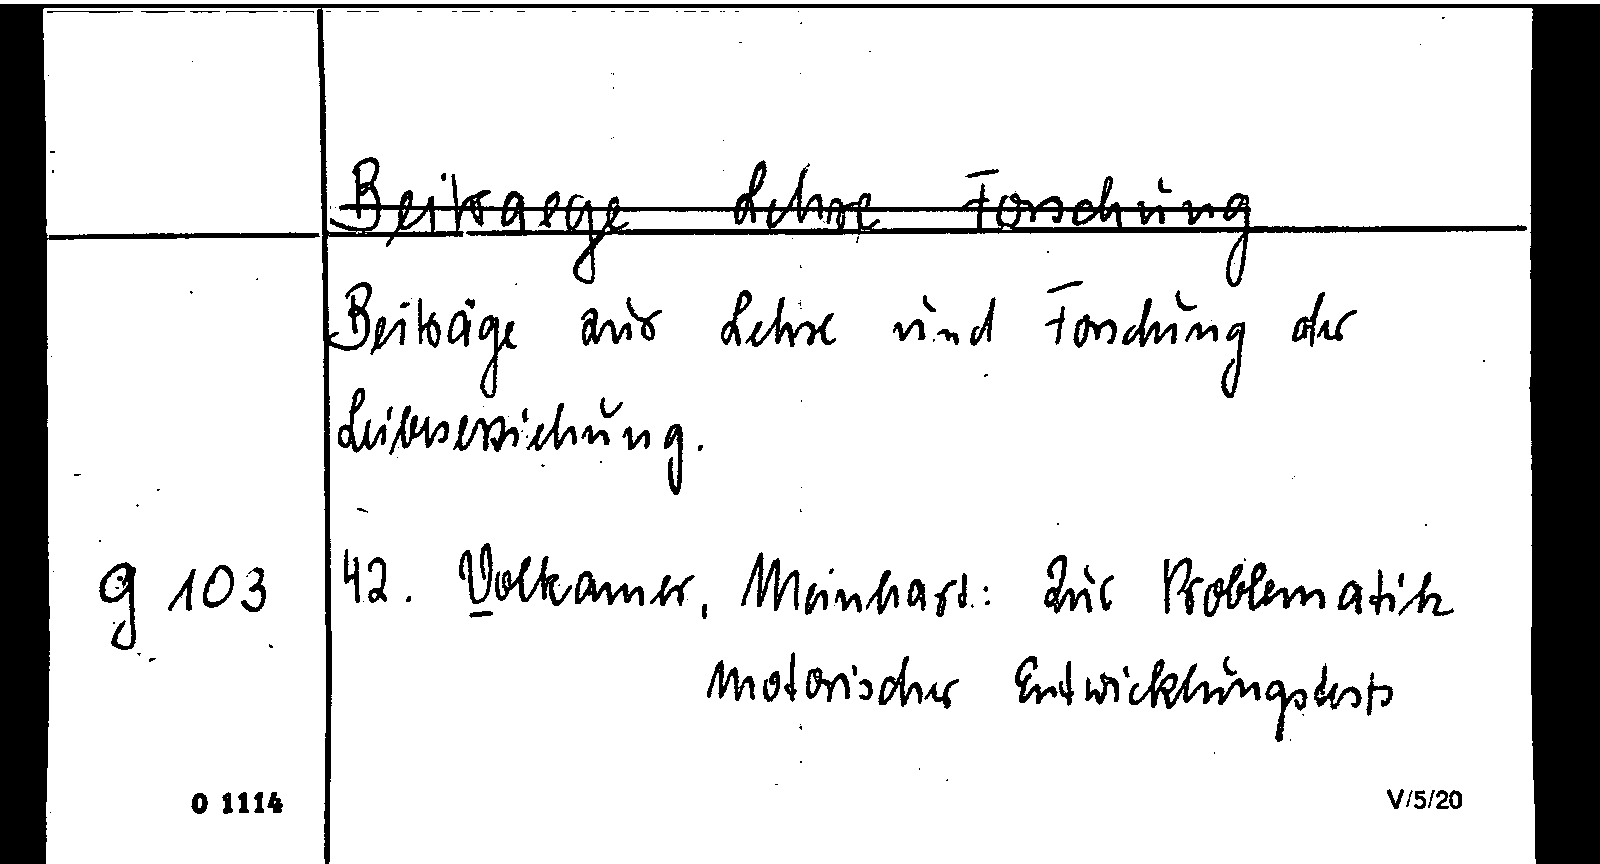 Beitraege Lehre Forschung
Beiträge aus Lehre und Forschung der
Leibeserziehung.
g 103 42. Volkamer, Meinhart: Zur Problematik
motorischer Entwicklungstests
O 1114 V/5/20